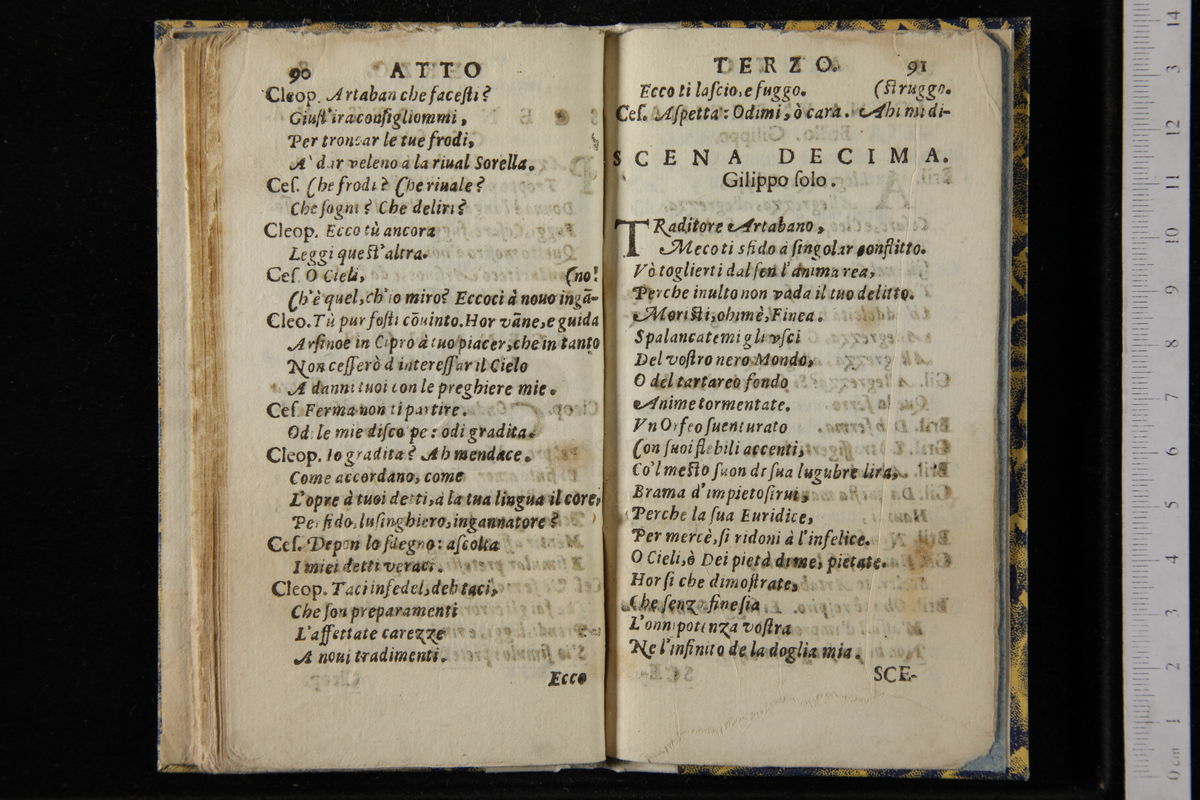 90 ATTO
Cleop. Artaban che facesti?
Giust'ira consigliommi,
Per troncar le tue frodi,
A' dar veleno à la riual Sorella.
Ces. Che frodi? Che riuale?
Che sogni? Che deliri?
Cleop. Ecco tù ancora
Leggi quest'altra.
Ces. O Cieli, (no!
Ch'è quel, ch'io miro? Eccoci à nouo ingā-
Cleo. Tù pur fosti cōuinto. Hor vāne, e guida
Arsinoe in Cipro à tuo piacer, che in tanto
Non cesserò d'interessar il Cielo
A danni tuoi con le preghiere mie.
Ces. Ferma non ti partire.
Odi le mie discolpe: odi gradita.
Cleop. Io gradita? Ah mendace.
Come accordano, come
L'opre à tuoi detti, à la tua lingua il core,
Perfido, lusinghiero, ingannatore?
Ces. Depon lo sdegno: ascolta
I miei detti veraci.
Cleop. Taci infedel, deh taci,
Che son preparamenti
L'affettate carezze
A noui tradimenti.
Ecco
TERZO. 91
Ecco ti lascio, e fuggo. (struggo.
Ces. Aspetta: Odimi, ò cara. Ahi mi di-
SCENA DECIMA.
Gilippo solo.
TRaditore Artabano,
Meco ti sfido à singolar conflitto.
Vò toglierti dal sen l'anima rea,
Perche inulto non vada il tuo delitto.
Moristi, ohimè, Finea.
Spalancatemi gli vsci
Del vostro nero Mondo,
O del tartareo fondo
Anime tormentate.
Vn Orfeo suenturato
Con suoi flebili accenti,
Co'l mesto suon di sua lugubre lira,
Brama d'impietosirui,
Perche la sua Euridice,
Per mercè, si ridoni à l'infelice.
O Cieli, ò Dei pietà di me, pietate.
Hor si che dimostrate,
Che senza fine sia
L'onnipotenza vostra
Ne l'infinito de la doglia mia.
SCE-